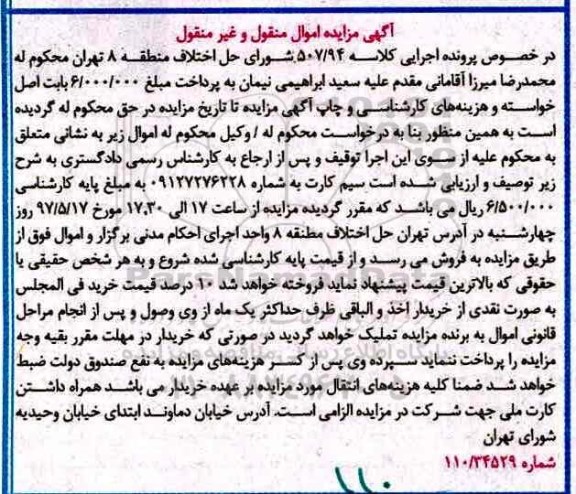 آگهی مزایده اموال منقول و غیر منقول
در خصوص پرونده اجرایی کلاسه ۵۰۷/۹۴ شورای حل اختلاف منطقه ۸ تهران محکوم له
محمدرضا میرزا آقامانی مقدم علیه سعید ابراهیمی نیمان به پرداخت مبلغ ۶/۰۰۰/۰۰۰ بابت اصل
خواسته و هزینه‌های کارشناسی و چاپ آگهی مزایده تا تاریخ مزایده در حق محکوم له گردیده
است به همین منظور بنا به درخواست محکوم له / وکیل محکوم له اموال زیر به نشانی متعلق
به محکوم علیه از سوی این اجرا توقیف و پس از ارجاع به کارشناس رسمی دادگستری به شرح
زیر توصیف و ارزیابی شده است سیم کارت به شماره ۰۹۱۲۷۲۷۶۲۲۸ به مبلغ پایه کارشناسی
۶/۵۰۰/۰۰۰ ریال می باشد که مقرر گردیده مزایده از ساعت ۱۷ الی ۱۷.۳۰ مورخ ۹۷/۵/۱۷ روز
چهارشنبه در آدرس تهران حل اختلاف منطقه ۸ واحد اجرای احکام مدنی برگزار و اموال فوق از
طریق مزایده به فروش می رسد و از قیمت پایه کارشناسی شده شروع و به هر شخص حقیقی یا
حقوقی که بالاترین قیمت پیشنهاد نماید فروخته خواهد شد ۱۰ درصد قیمت خرید فی المجلس
به صورت نقدی از خریدار اخذ و الباقی ظرف حداکثر یک ماه از وی وصول و پس از انجام مراحل
قانونی اموال به برنده مزایده تملیک خواهد گردید در صورتی که خریدار در مهلت مقرر بقیه وجه
مزایده را پرداخت ننماید سپرده وی پس از کسر هزینه‌های مزایده به نفع صندوق دولت ضبط
خواهد شد ضمنا کلیه هزینه‌های انتقال مورد مزایده بر عهده خریدار می باشد همراه داشتن
کارت ملی جهت شرکت در مزایده الزامی است. آدرس خیابان دماوند ابتدای خیابان وحیدیه
شورای تهران
شماره ۱۱۰/۳۴۵۲۹
۱۱۰
ParsNamadData